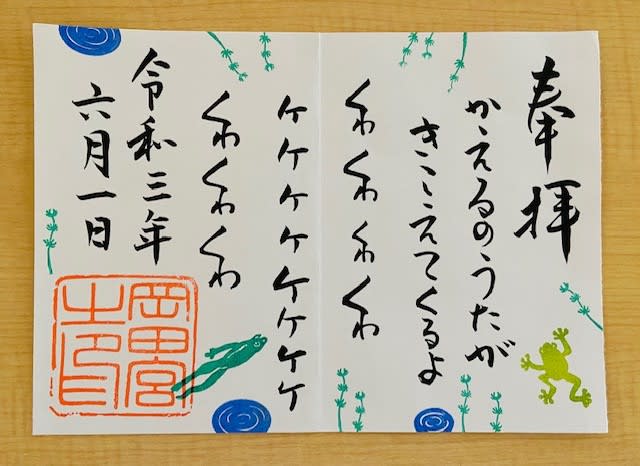 奉拝
かえるのうたが
きこえてくるよ
くわくわくわくわ
ケケケケケケケケ
くわくわくわ
令和三年
六月一日
岡田宮
之印